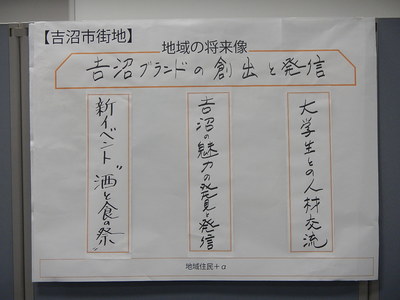 【吉沼市街地】
地域の将来像
吉沼ブランドの創出と発信
大学生との人材交流
吉沼の魅力の発見と発信
新イベント"酒と食の祭"
地域住民+α